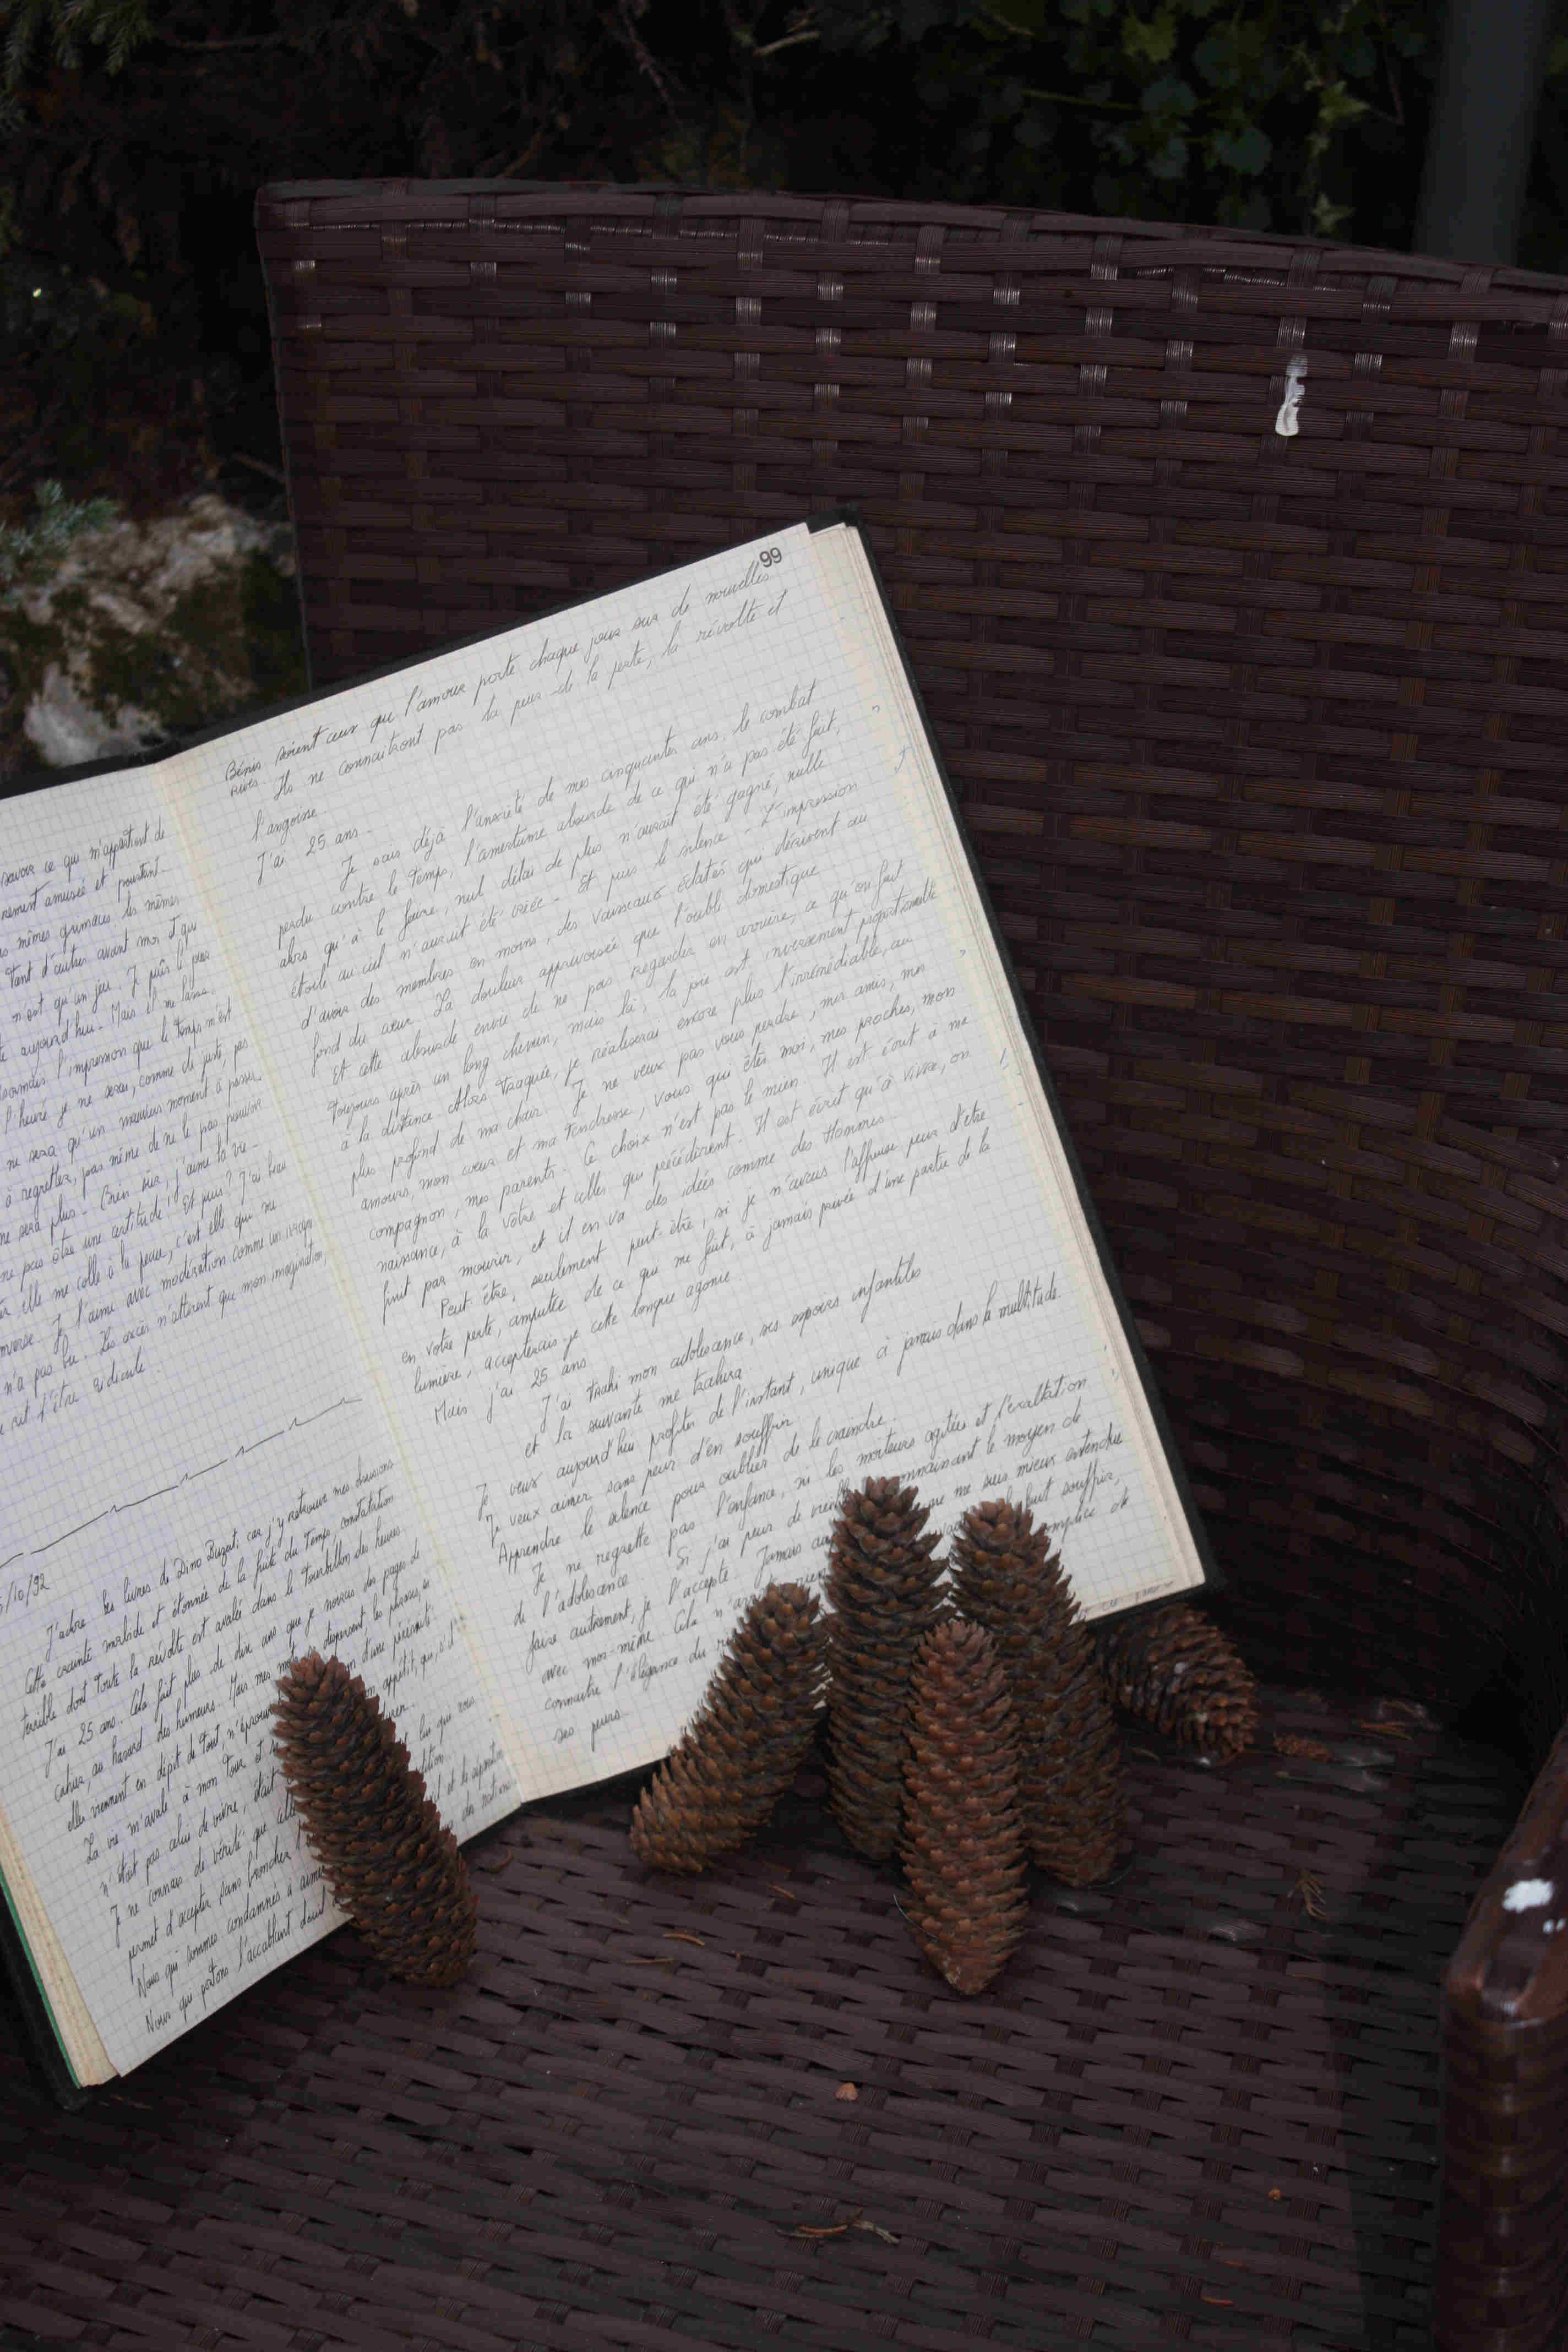 savoir ce qui m'appartient de
rement amusée et pourtant.
s mêmes grimaces les mêmes
tant d'autres avant moi et qui
n'est qu'un jeu. Je puis le
aujourd'hui - Mais il ne
l'impression que le temps m'est
l'heure je ne serai, comme de juste, pas
ne sera qu'un mauvais moment à passer
à regretter, pas même de ne le pas pouvoir
ne sera plus - Bien sûr, j'aime la vie -
ne pas être une certitude! Et puis? J'ai beau
elle me colle à la peau, c'est elle qui ne
inverse. Je l'aime avec modération comme un
n'a pas bu. Les excès n'altèrent que mon imagination,
d'être ridicule.
/10/92
J'adore les livres de Dino Buzati, car j'y retrouve mes
Cette crainte malade et étonnée de la fuite du temps, constatation
terrible dont toute la révolte est avalée dans le tourbillon des heures.
J'ai 25 ans. Cela fait plus de dix ans que je noircis des pages de
cahier, au hasard des humeurs. Mais mes mots se dispersent, les phrases,
elles viennent en dépit de tout, n'éprouv d'une nécessité
La vie m'avale à mon tour et appétit, qui, s'il
n'était pas celui de vivre, était
Je ne connais de vérité que celle lui qui nous
permet d'accepter sans broncher
Nous qui sommes condamnés à aimer
Nous qui portons l'accablant
99
Bénis soient ceux que l'amour porte chaque jour sur de nouvelles
rives. Ils ne connaitront pas la peur de la perte, la révolte et
l'angoisse.
J'ai 25 ans -
Je sais déjà l'anxiété de mes cinquantes ans, le combat
perdu contre le temps, l'amertume absurde de ce qui n'a pas été fait,
alors qu'à le faire, nul délai de plus n'aurait été gagné, nulle
étoile au ciel n'aurait été créée - Et puis le silence - L'impression
d'avoir des membres en moins, des vaisseaux éclatés qui dérivent au
fond du cœur. La douleur apprivoisée que l'oubli domestique
Et cette absurde envie de ne pas regarder en arrière, ce qu'on fait
toujours après un long chemin, mais là, la joie est inversement proportionnelle
à la distance - Alors traquée, je réaliserai encore plus l'irrémédiable, au
plus profond de ma chair. Je ne veux pas vous perdre, mes amis, mes
amours, mon cœur et ma tendresse, vous qui êtes moi, mes proches, mon
compagnon, mes parents - Ce choix n'est pas le mien. Il est écrit à ma
naissance, à la vôtre et celles qui précédèrent. Il est écrit qu'à vivre, on
finit par mourir, et il en va des idées comme des Hommes.
Peut être, seulement peut-être, si je n'avais l'affreuse peur d'être
en votre perte, amputée de ce qui me fait, à jamais privée d'une partie de la
lumière, accepterais-je cette longue agonie
Mais j'ai 25 ans
J'ai trahi mon adolescence, ses espoirs infantiles
et la suivante me trahira
Je veux aujourd'hui profiter de l'instant, unique à jamais dans la multitude.
Je veux aimer sans peur d'en souffrir
Apprendre le silence pour oublier de le craindre.
Je ne regrette pas l'enfance, ni les moiteurs agitées et l'exaltation
de l'adolescence. Si j'ai peur de vieill connaissant le moyen de
faire autrement, je l'accepte. Jamais au que ne me suis mieux entendue
avec moi-même. Cela n'arr rien faut souffrir,
connaitre l'élégance du complice de
ses peurs.